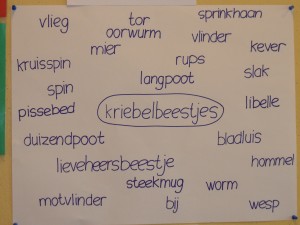 vlieg
tor
sprinkhaan
oorwurm
vlinder
mier
kever
kruisspin
rups
langpoot
slak
spin
pissebed
kriebelbeestjes
libelle
duizendpoot
bladluis
lieveheersbeestje
hommel
steekmug
worm
motvlinder
bij
wesp